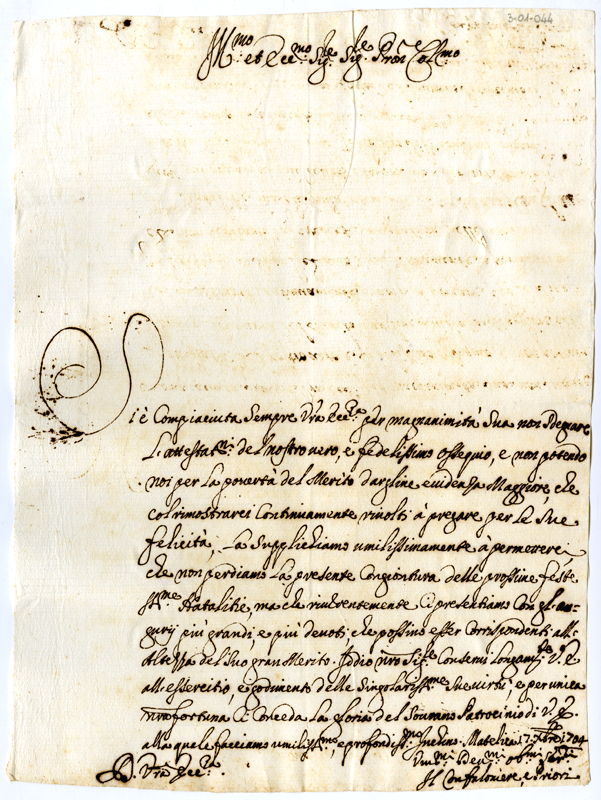 3-01-044
Ill.mo et Ecc.mo Sig.re Sig.re Pron Col.mo
Si è Compiaciuta Sempre Vra Ecc.za per magnanimità Sua non sdegnare
L'attestat.ni del nostro vero, e fedelissimo ossequio, e non potendo
noi per la povertà del Merito dargline evidenza Maggiore, che
col rimostrarci Continuamente rivolti à pregare per le Sue
felicità, La Supplichiamo umilissimamente à permetterci,
che non perdiamo La presente Congiontura delle prossime feste
SS.me Natalitie, ma che riverentemente Ci presentiamo Con gl'au-
gurij più grandi, e più devoti, che possino esser Corrispondenti all'
Altezza del Suo gran Merito. Iddio nro Sig.re Conservi Longam.te V. E.
all'essercitio, e godimento delle Singolariss.me Sue virtù, e per unica
nra fortuna Ci Conceda La gloria del Sommo Patrocinio di V. E.
alla quale facciamo umiliss.mo, e profondiss.mo Inchino. Matelica 17 Xbre 1704
D. Vra Ecc.za
Um.mi Dev.mi Obl.mi Ser.ri
Il Confaloniere, e Priori